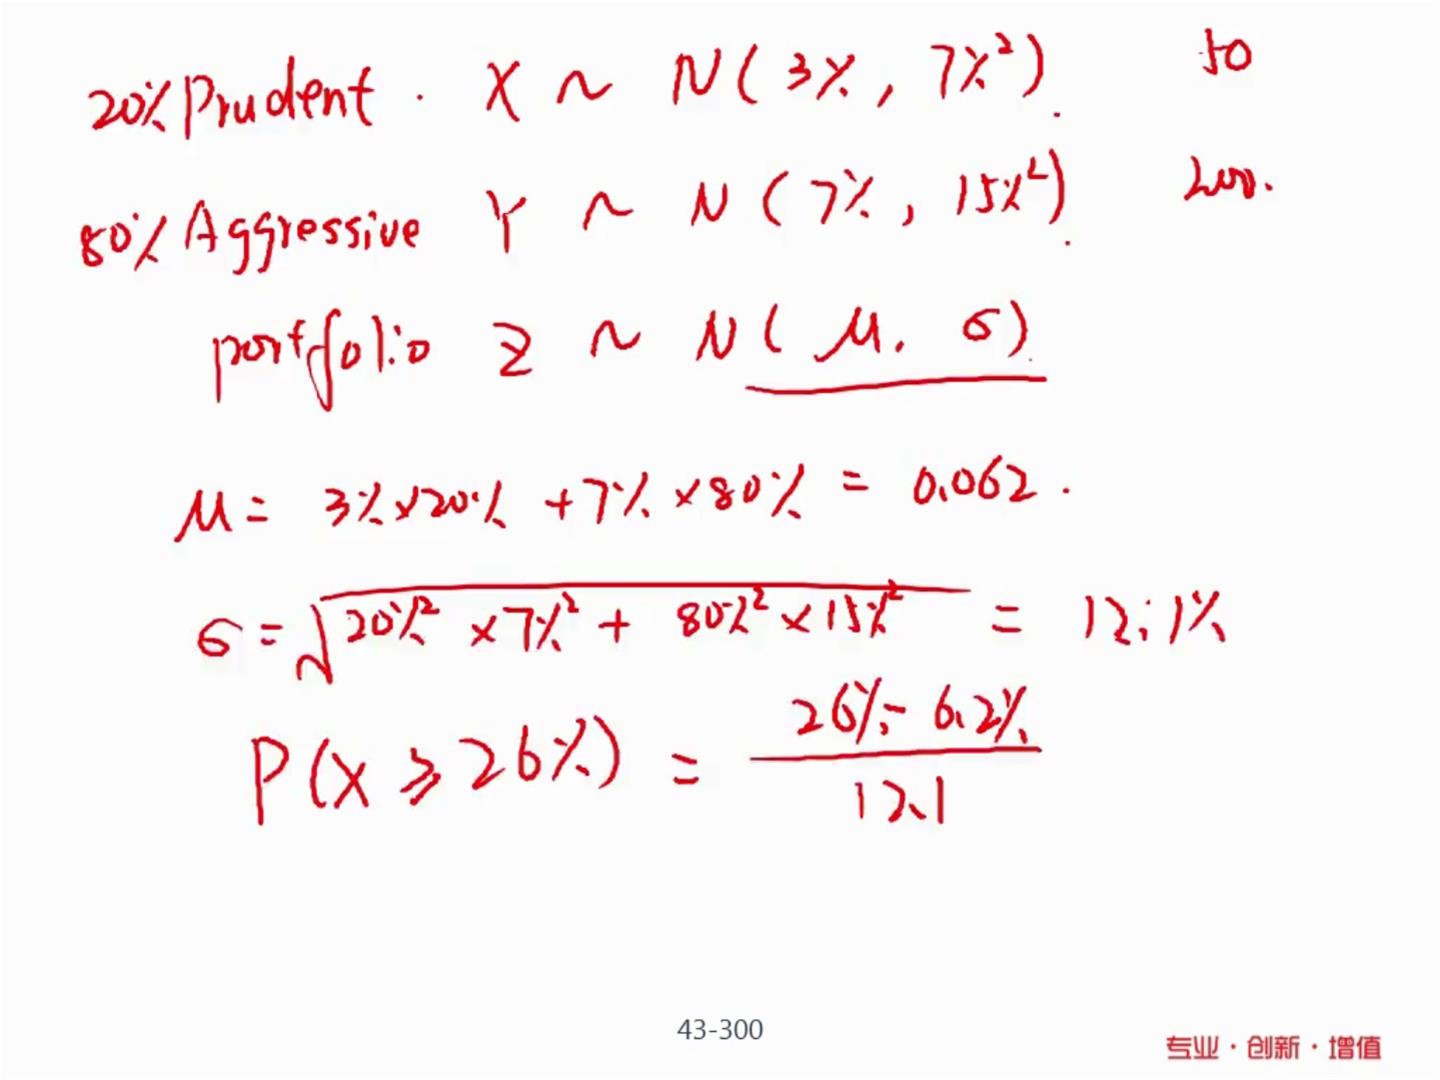 20% Prudent . X ~ N(3%, 7%²). 50
80% Aggressive Y ~ N(7%, 15%²). 200.
portfolio Z ~ N(μ. σ).
μ = 3%×20% +7%×80% = 0.062.
σ = √20%²×7%²+ 80%²×15%² = 12.1%
P(X ≥ 26%) = 26%-6.2%
12.1
43-300
专业·创新·增值